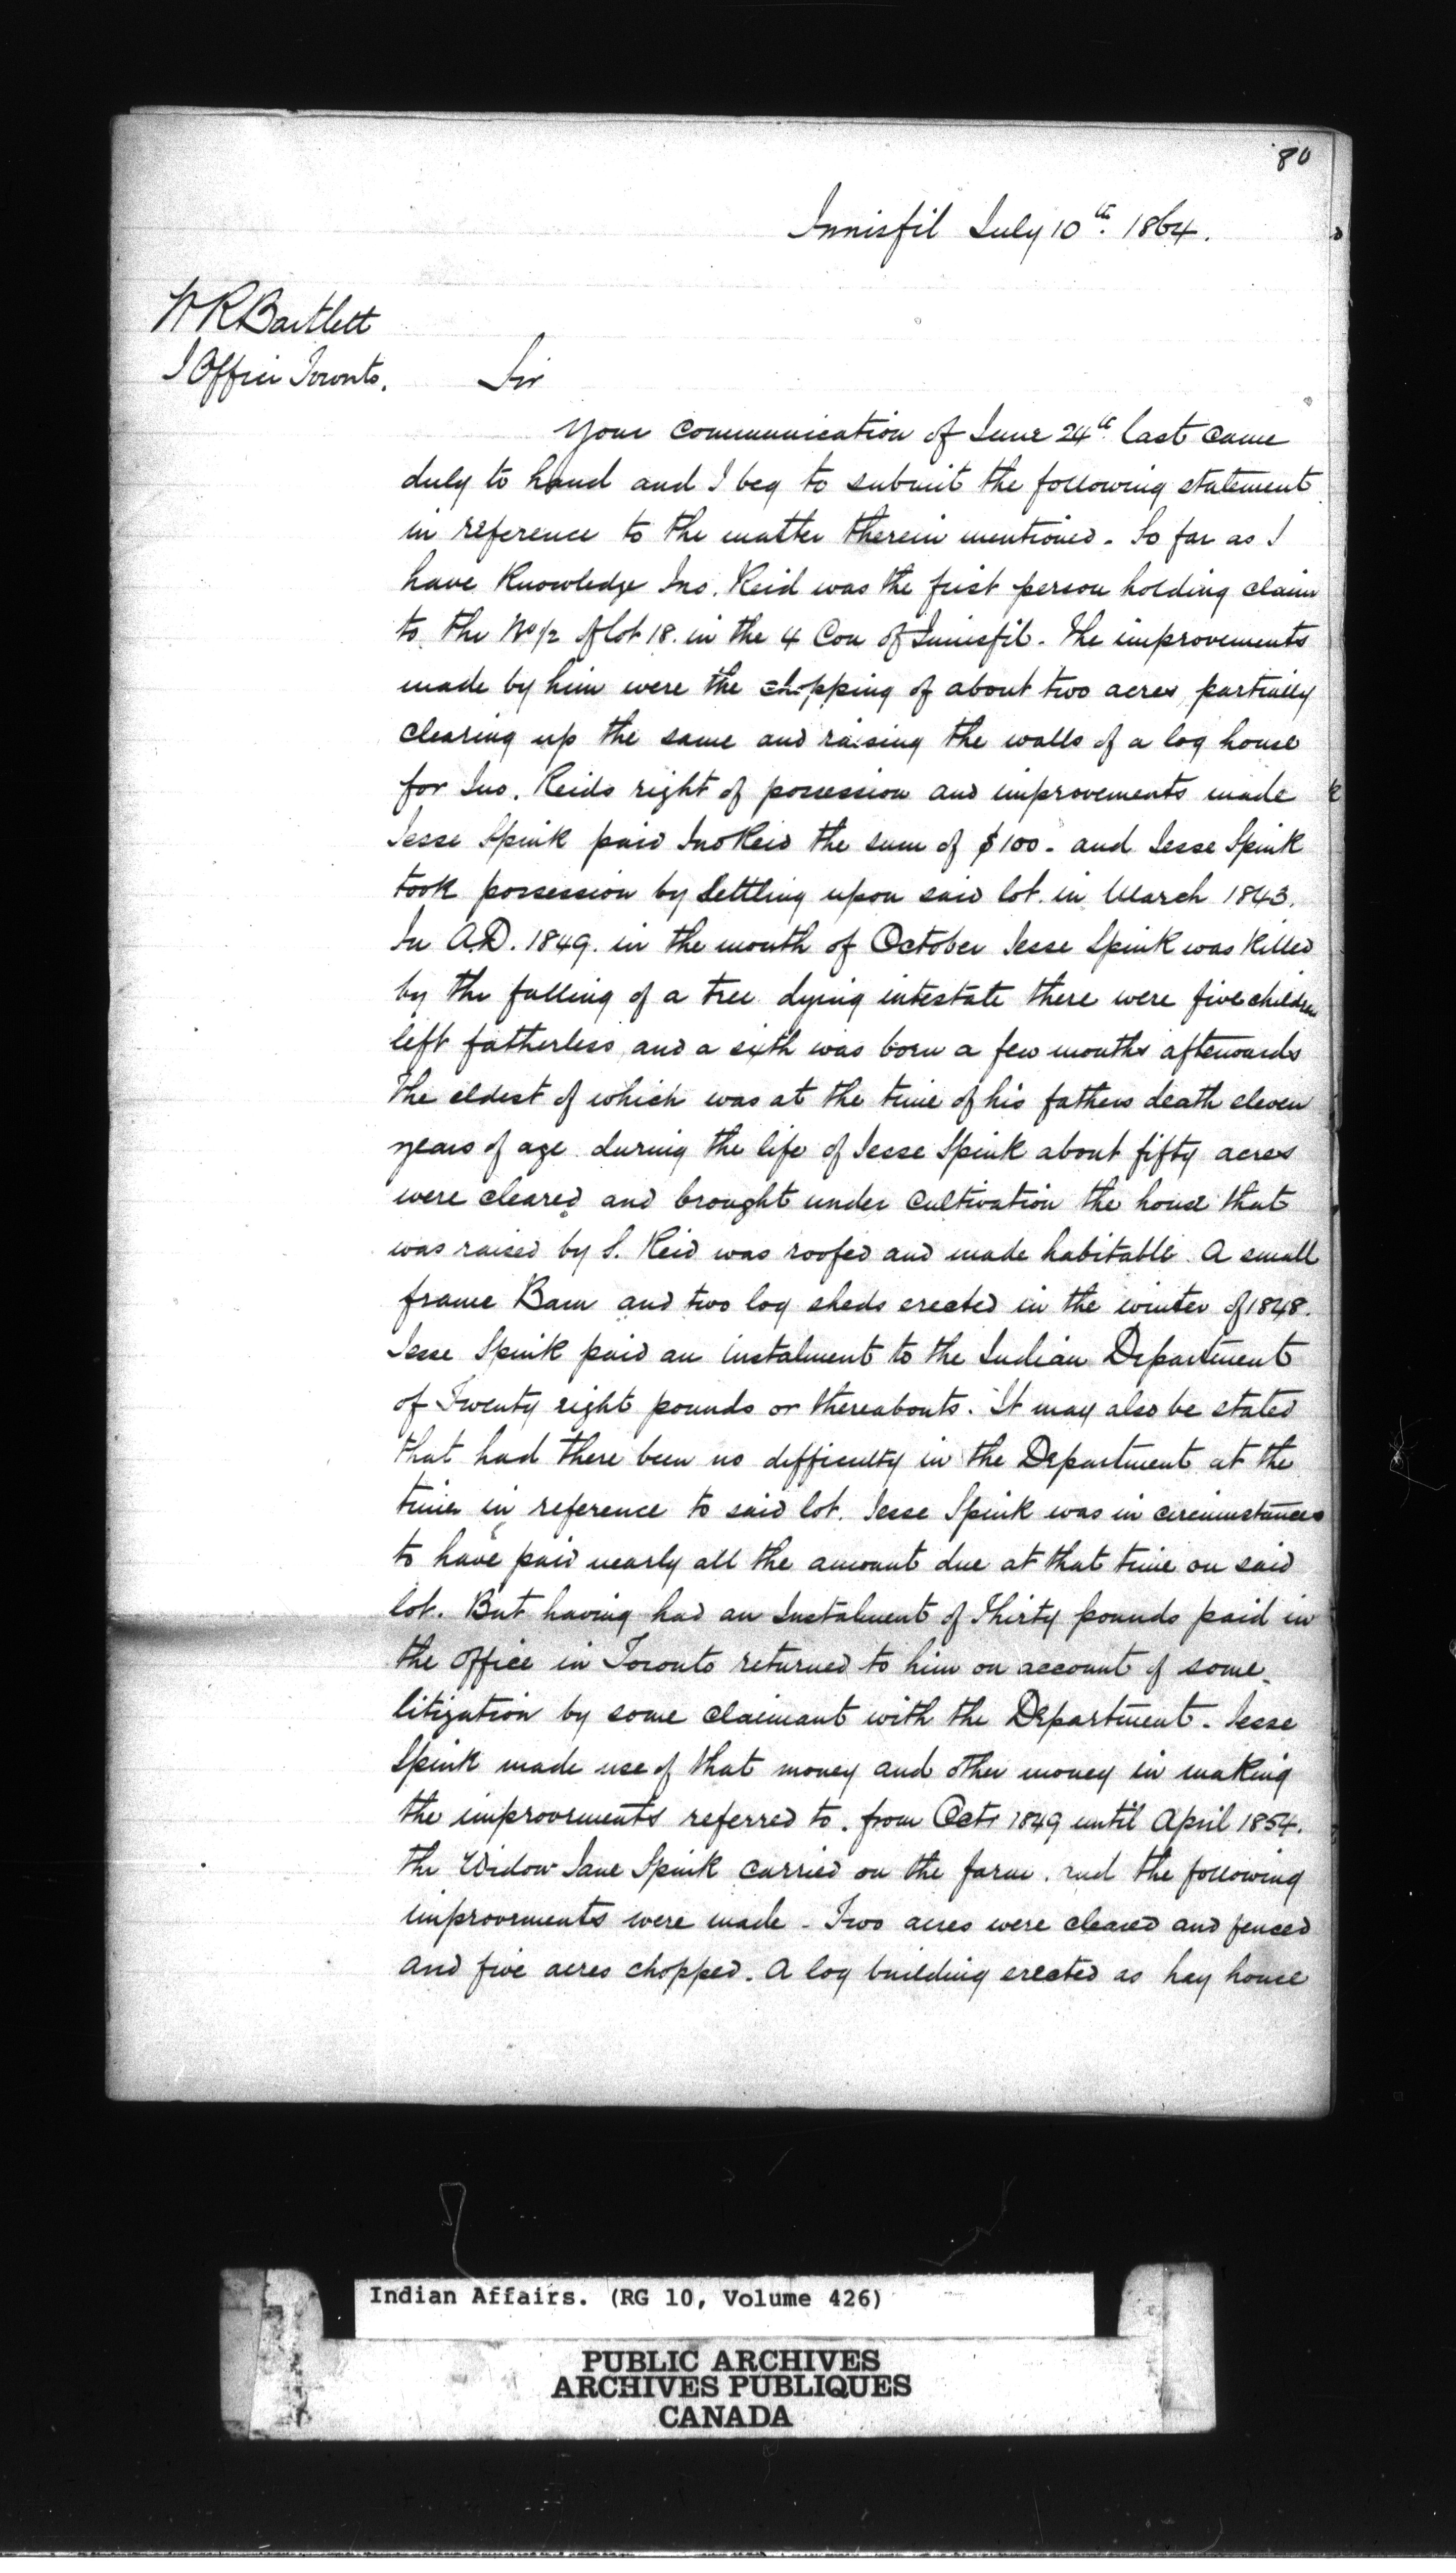 80
Innisfil July 10th. 1864.
W R Bartlett
I Office Toronto.
Sir
Your communication of June 24th. last came
duly to hand and I beg to submit the following statement
in reference to the matter therein mentioned. So far as I
have Knowledge Jno. Reid was the first person holding claim
to the W 1/2 of lot 18. in the 4 Con of Innisfil. The improvements
made by him were the chopping of about two acres, partially
clearing up the same and raising the walls of a log house
for Jno. Reids right of possession and improvements made
Jesse Spink paid Jno Reid the sum of $100. and Jesse Spink
took possession by Settling upon said lot. in March 1843.
In A.D. 1849. in the month of October Jesse Spink was Killed
by the falling of a tree dying intestate there were five children
left fatherless and a sixth was born a few months afterwards
The eldest of which was at the time of his fathers death eleven
years of age. during the life of Jesse Spink about fifty acres
were cleared and brought under cultivation the house that
was raised by J. Reid was roofed and made habitable. A small
frame Barn and two log sheds erected in the winter of 1848.
Jesse Spink paid an instalment to the Indian Department
of Twenty eight pounds or thereabouts. It may also be stated
that had there been no difficulty in the Department at the
time in reference to said lot. Jesse Spink was in circumstances
to have paid nearly all the amount due at that time on said
lot. But having had an Instalment of Thirty pounds paid in
the office in Toronto returned to him on account of some
litigation by some claimant with the Department. Jesse
Spink made use of that money and other money in making
the improvements referred to. from Oct 1849 until April 1854.
the Widow Jane Spink carried on the farm. and the following
improvements were made - Two acres were cleared and fenced
and five acres chopped. A log building erected as hay house
Indian Affairs. (RG 10, Volume 426)
PUBLIC ARCHIVES
ARCHIVES PUBLIQUES
CANADA